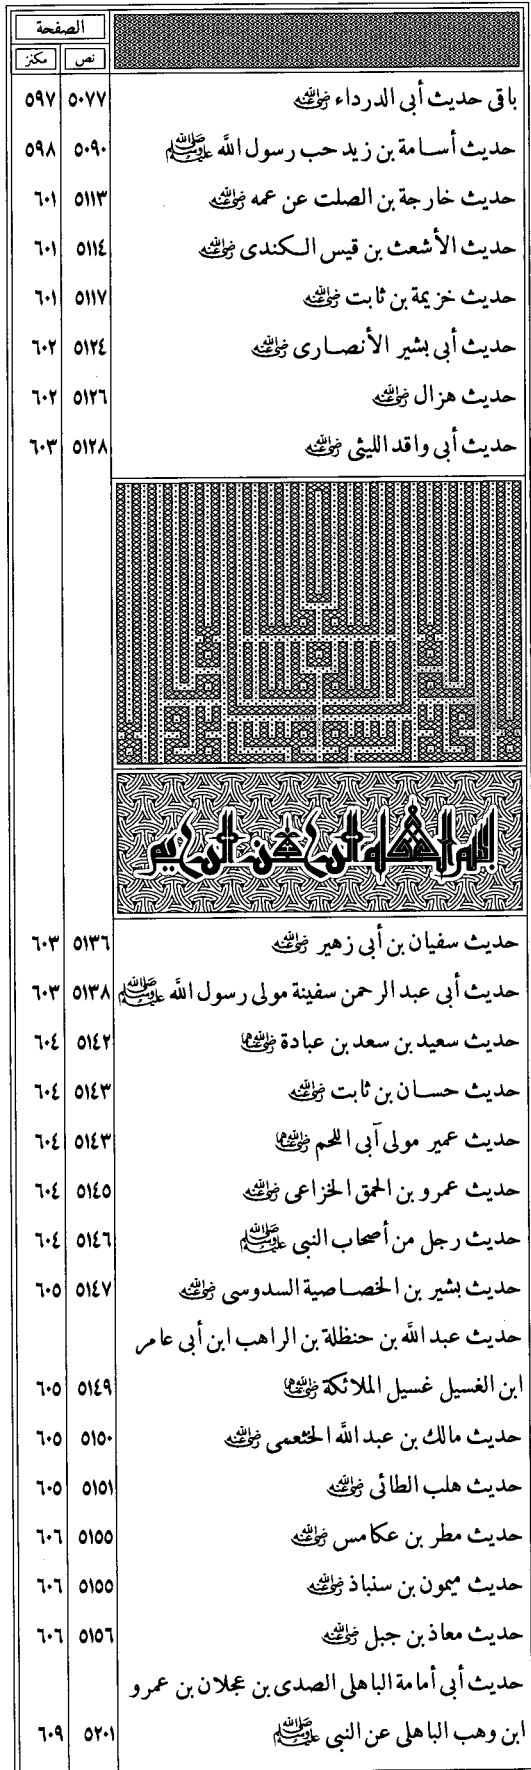 الصفحة
نص مكنز
باقى حديث أبى الدرداء رضي الله عنه ٥٠٧٧ ٥٩٧
حديث أسامة بن زيد حب رسول الله صلى الله عليه وسلم ٥٠٩٠ ٥٩٨
حديث خارجة بن الصلت عن عمه رضي الله عنه ٥١١٣ ٦٠١
حديث الأشعث بن قيس الكندى رضي الله عنه ٥١١٤ ٦٠١
حديث خزيمة بن ثابت رضي الله عنه ٥١١٧ ٦٠١
حديث أبى بشير الأنصارى رضي الله عنه ٥١٢٤ ٦٠٢
حديث هزال رضي الله عنه ٥١٢٦ ٦٠٢
حديث أبى واقد الليثى رضي الله عنه ٥١٢٨ ٦٠٣
بسم الله الرحمن الرحيم
حديث سفيان بن أبى زهير رضي الله عنه ٥١٣٦ ٦٠٣
حديث أبى عبد الرحمن سفينة مولى رسول الله صلى الله عليه وسلم ٥١٣٨ ٦٠٣
حديث سعيد بن سعد بن عبادة رضي الله عنهما ٥١٤٢ ٦٠٤
حديث حسان بن ثابت رضي الله عنه ٥١٤٣ ٦٠٤
حديث عمير مولى آبى اللحم رضي الله عنهما ٥١٤٣ ٦٠٤
حديث عمرو بن الحمق الخزاعى رضي الله عنه ٥١٤٥ ٦٠٤
حديث رجل من أصحاب النبى صلى الله عليه وسلم ٥١٤٦ ٦٠٤
حديث بشير بن الخصاصية السدوسى رضي الله عنه ٥١٤٧ ٦٠٥
حديث عبد الله بن حنظلة بن الراهب ابن أبى عامر
ابن الغسيل غسيل الملائكة رضي الله عنهما ٥١٤٩ ٦٠٥
حديث مالك بن عبد الله الخثعمى رضي الله عنه ٥١٥٠ ٦٠٥
حديث هلب الطائى رضي الله عنه ٥١٥١ ٦٠٥
حديث مطر بن عكامس رضي الله عنه ٥١٥٥ ٦٠٦
حديث ميمون بن سنباذ رضي الله عنه ٥١٥٥ ٦٠٦
حديث معاذ بن جبل رضي الله عنه ٥١٥٦ ٦٠٦
حديث أبى أمامة الباهلى الصدى بن عجلان بن عمرو
ابن وهب الباهلى عن النبى صلى الله عليه وسلم ٥٢٠١ ٦٠٩